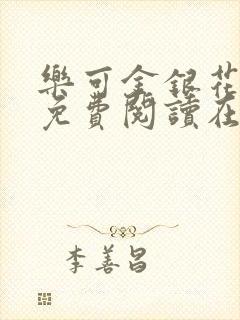 樂可金銀花
免費閱讀在
李善昌